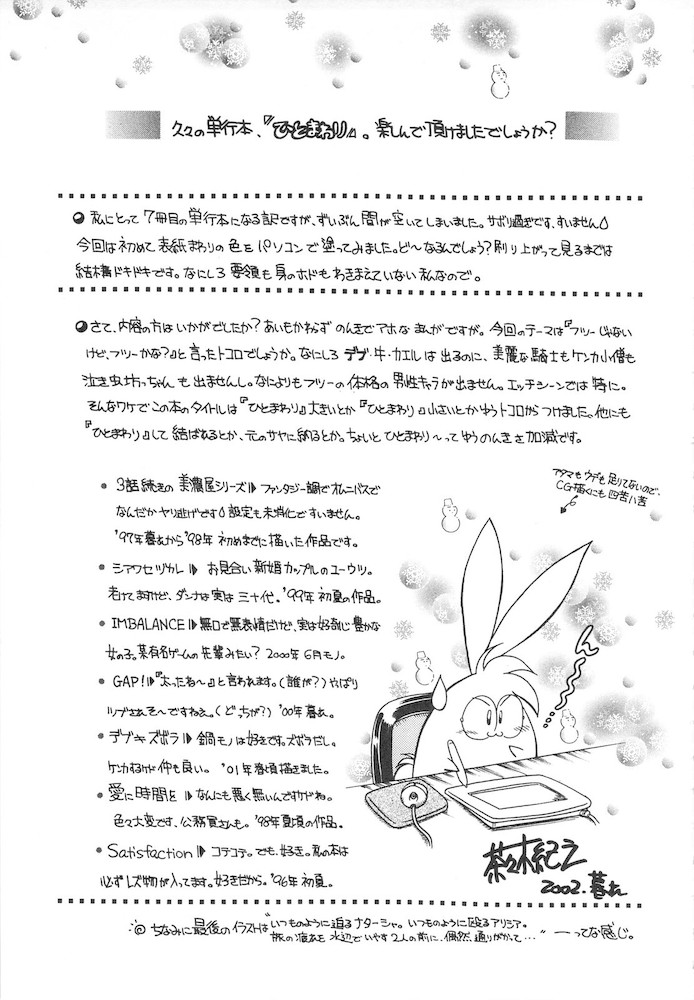 久々の単行本、『ひとまわり』。楽しんで頂けましたでしょうか?
私にとって7冊目の単行本になる訳ですが、ずいぶん間が空いてしまいました。サボり過ぎです、すいません
今回は初めて表紙まわりの色をパソコンで塗ってみました。ど〜なるんでしょう?刷り上がって見るまでは
結構ドキドキです。なにしろ要領も身のホドもわきまえていない私なので。
さて、内容の方はいかがでしたか?あいもかわらずのんきでアホなまんがですが。今回のテーマは『フツーじゃない
けど、フツーかな?』と言ったトコロでしょうか。なにしろデブ・牛・カエルは出るのに、美麗な騎士もケンカ小僧も
泣き虫坊っちゃんも出ませんし。なによりもフツーの体格の男性キャラが出ません。エッチシーンでは特に。
そんなワケでこの本のタイトルは『ひとまわり』大きいとか『ひとまわり』小さいとかゆうトコロからつけました。他にも
『ひとまわり』して結ばれるとか、元のサヤに納るとか。ちょいとひとまわり〜ってゆうのんきな加減です。
アタマもウデも足りてないので、
CG描くにも四苦八苦
3話続きの美濃屋シリーズ ファンタジー調でオムニバスで
なんだかヤリ逃げです 設定も未消化ですいません。
'97年暮れから'98年初めまでに描いた作品です。
シアワセヅカレ お見合い新婚カップルのユーウツ。
老けてますけど、ダンナは実は三十代。'99年初夏の作品。
IMBALANCE 無口で無表情だけど、実は好奇心豊かな
女の子。某有名ゲームの先輩みたい?2000年6月モノ。
GAP! 『太ったね〜』と言われます。(誰が?)やっぱり
ツブされそ〜ですねえ。(どっちが?)'00年暮れ。
デブキズボラ 鍋モノは好きです。ズボラだし。
ケンカするけど仲も良い。'01年春頃描きました。
愛に時間を なんにも悪く無いんですけどね。
色々大変です、公務員さんも。'98年夏頃の作品。
Satisfaction コテコテ。でも、好き。私の本は
必ずレズ物が入ってます。好きだから。'96年初夏。
ん〜
茶々木紀之
2002.暮れ
ちなみに最後のイラストは"いつものように迫るナターシャ。いつものように殴るアリシア。
旅の疲れを水辺でいやす2人の前に、偶然通りがかって…"―ってな感じ。